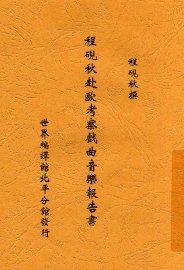 程硯秋撰
程硯秋赴歐考察戲曲音樂報告書
世界編譯館北平分館發行